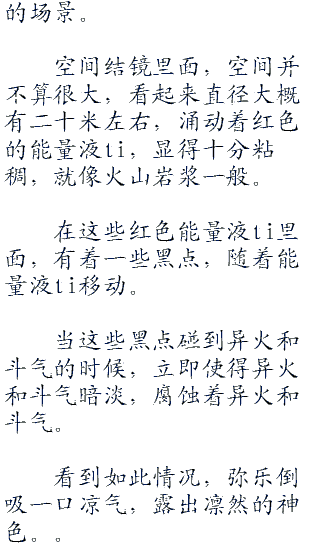 的场景。
空间结镜里面，空间并
不算很大，看起来直径大概
有二十米左右，涌动着红色
的能量液ti，显得十分粘
稠，就像火山岩浆一般。
在这些红色能量液ti里
面，有着一些黑点，随着能
量液ti移动。
当这些黑点碰到异火和
斗气的时候，立即使得异火
和斗气暗淡，腐蚀着异火和
斗气。
看到如此情况，弥乐倒
吸一口凉气，露出凛然的神
色。。